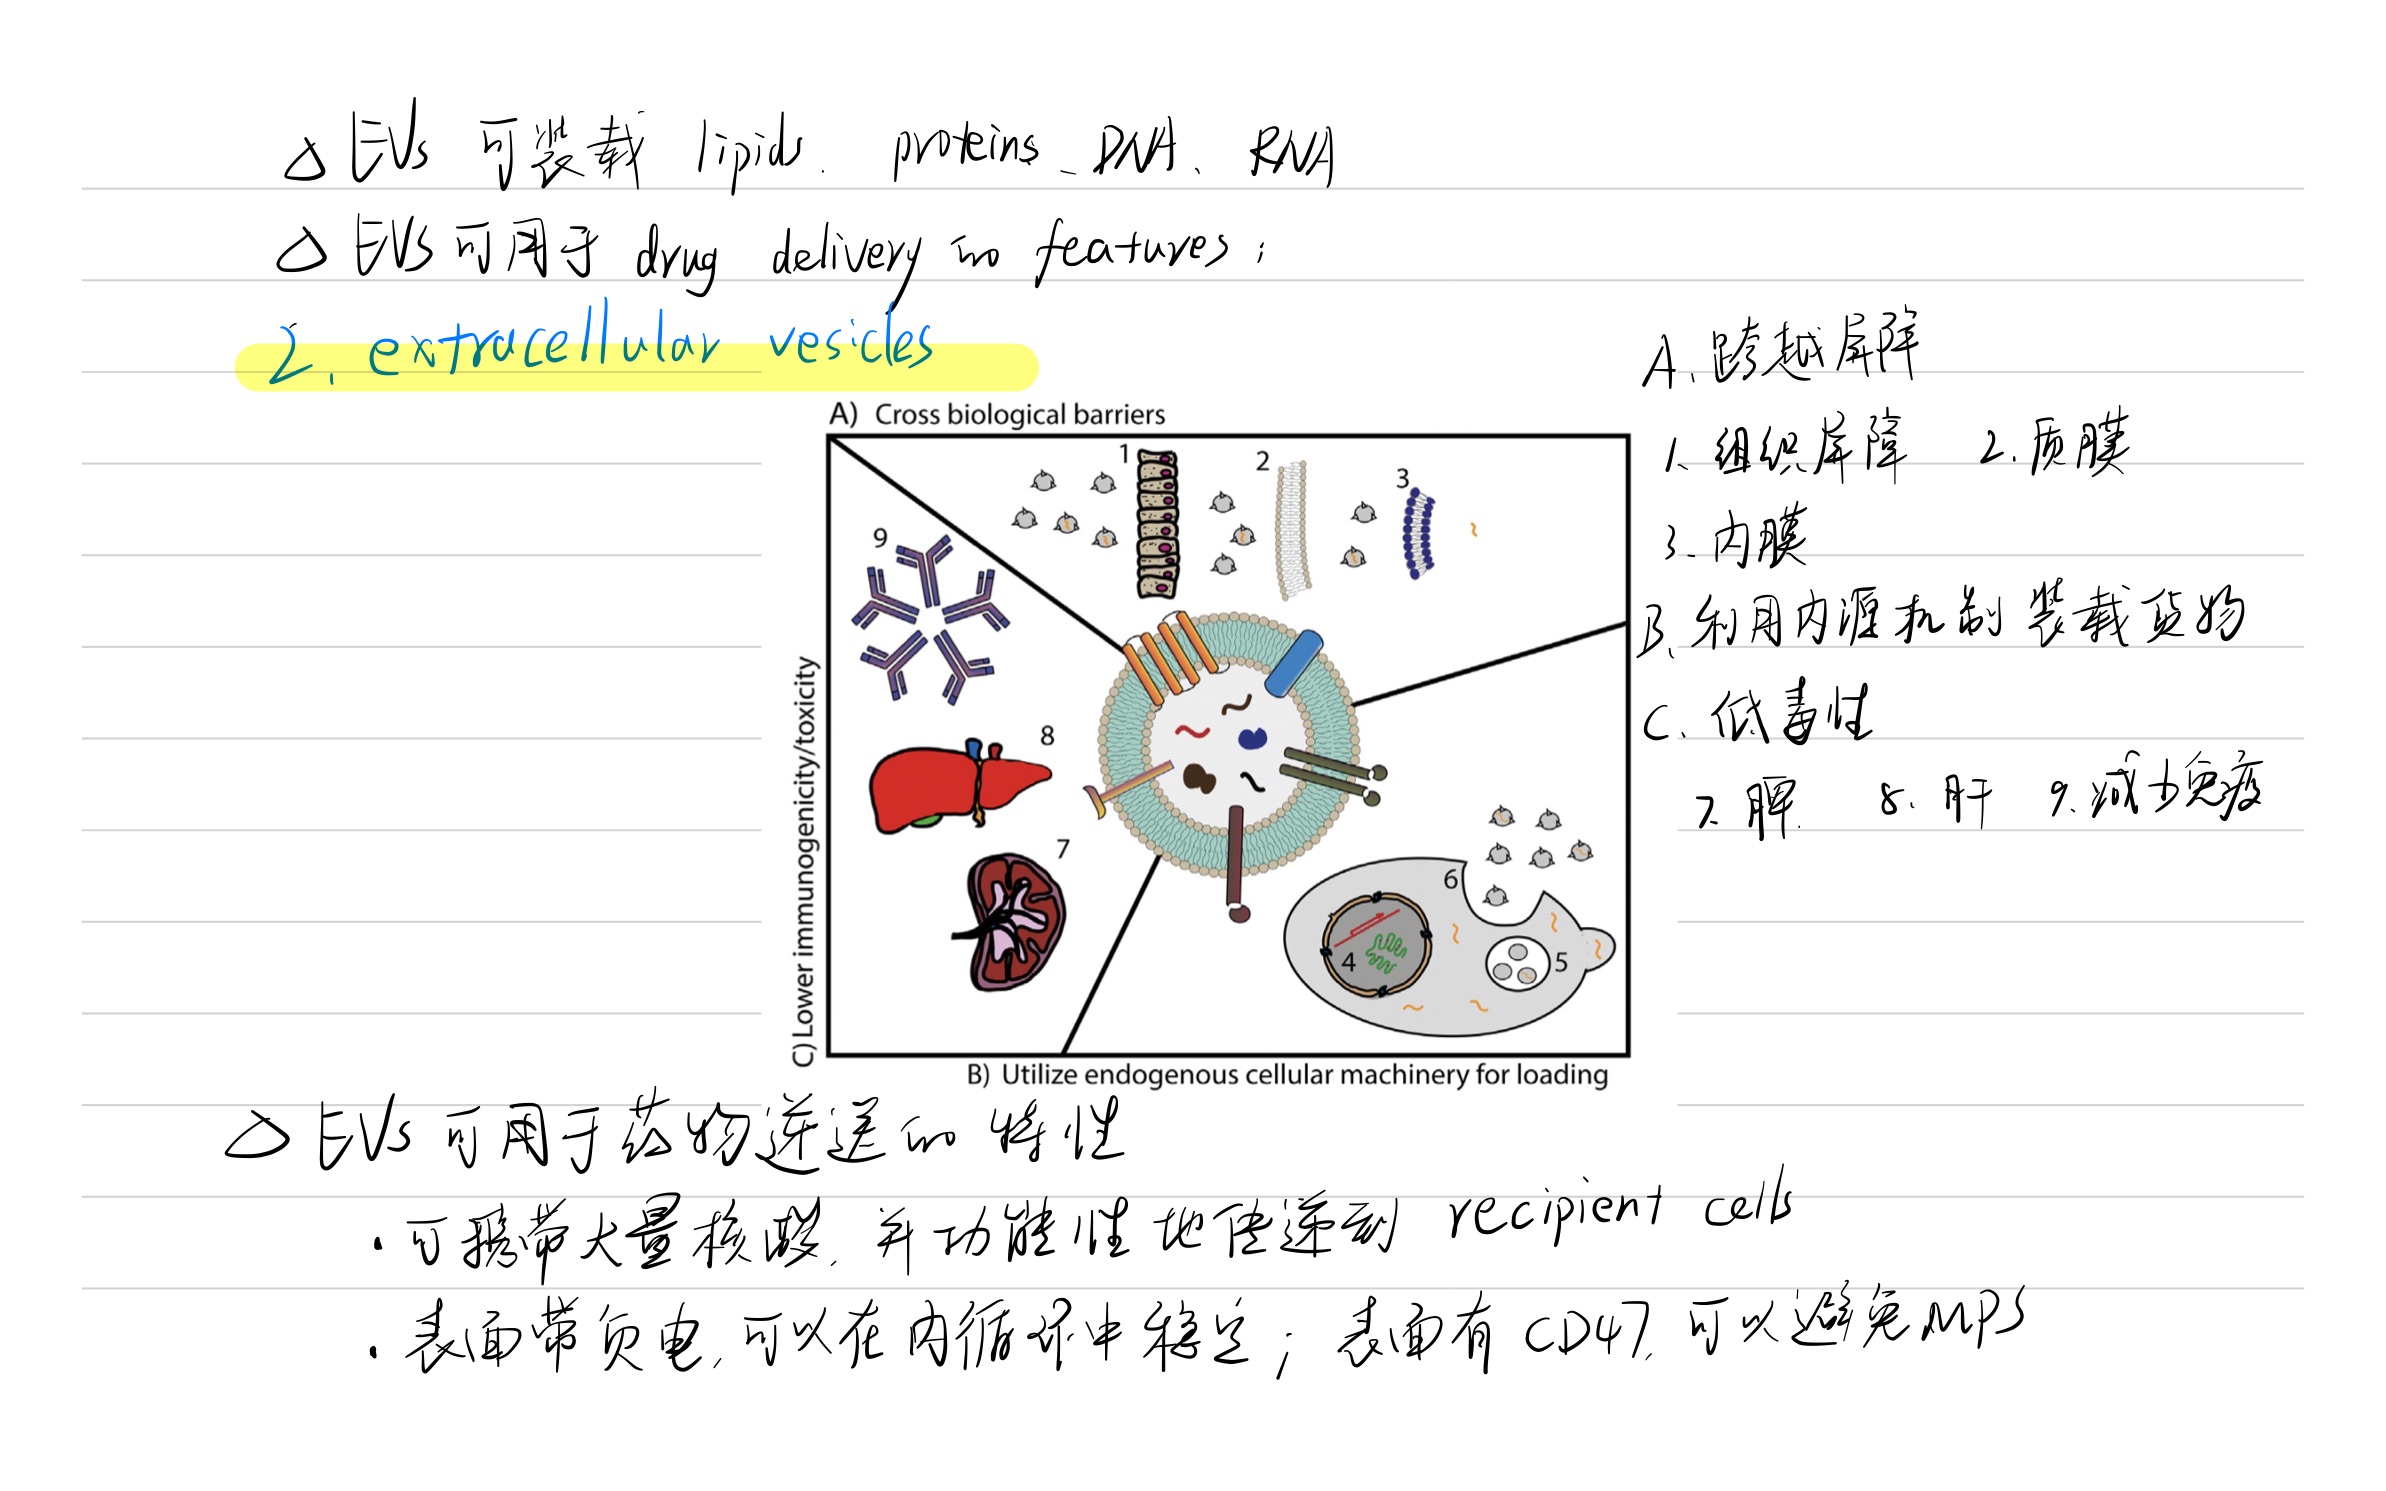 △ EVs 可装载 lipids、proteins、DNA、RNA
△ EVs可用于 drug delivery 的 features：
2. extracellular vesicles
A) Cross biological barriers
1
2
3
9
8
7
6
4
5
C) Lower immunogenicity/toxicity
B) Utilize endogenous cellular machinery for loading
A、跨越屏障
1、组织屏障 2. 质膜
3、内膜
B、利用内源机制装载货物
C、低毒性
7. 脾. 8. 肝 9. 减少免疫
△ EVs 可用于药物递送的特性
·可携带大量核酸，并功能性地传递到 recipient cells
·表面带负电，可以在内循环中稳定；表面有 CD47，可以避免MPS